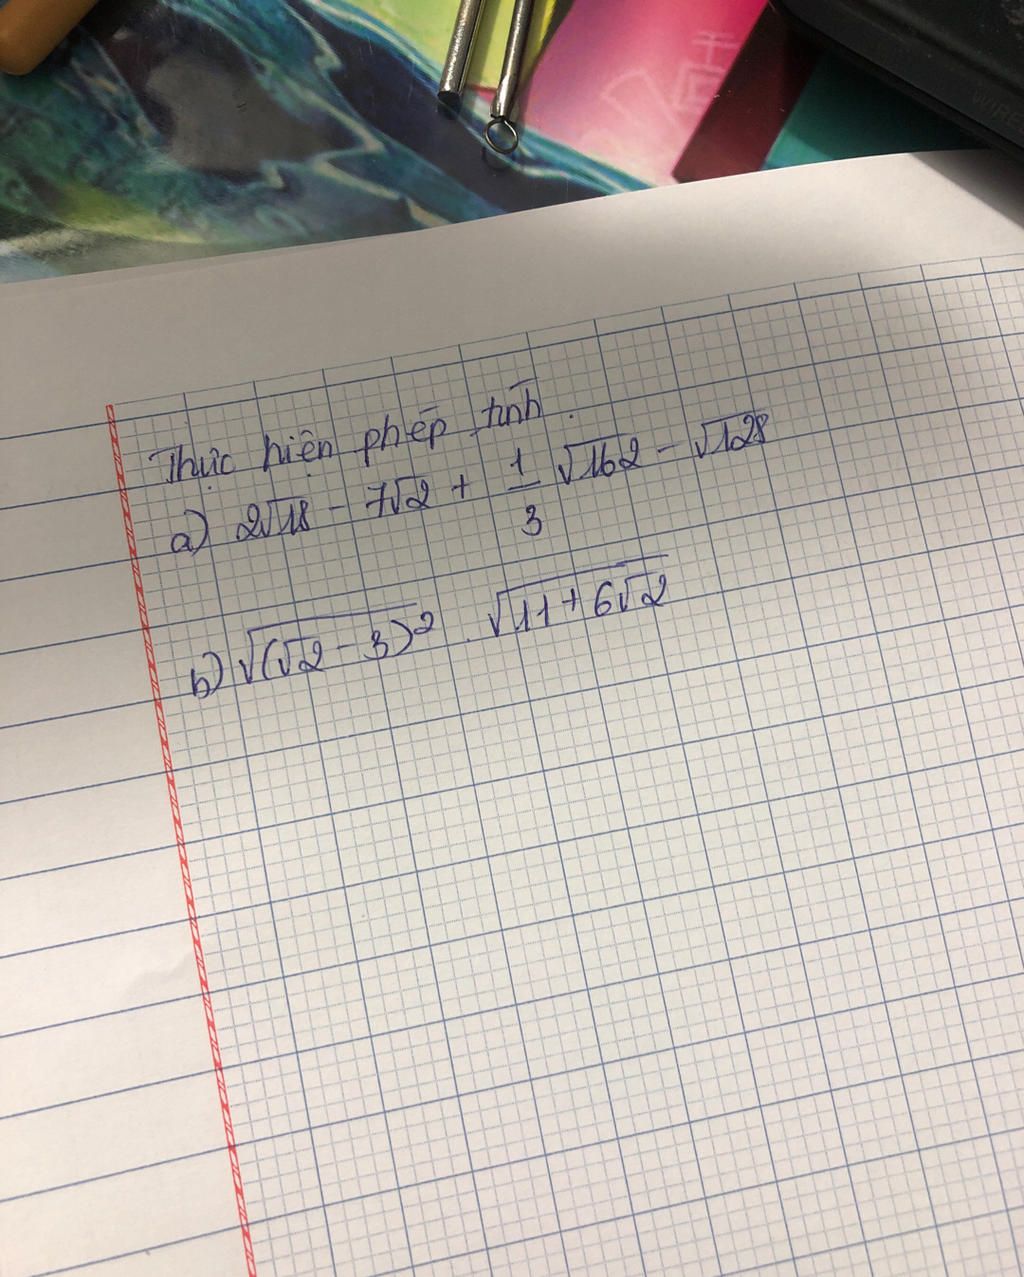 WIRE
Thực hiện phép tính.
a) 2√18 - 7√2 + 1/3 √162 - √128
b) √((√2 - 3)²) . √(11 + 6√2)